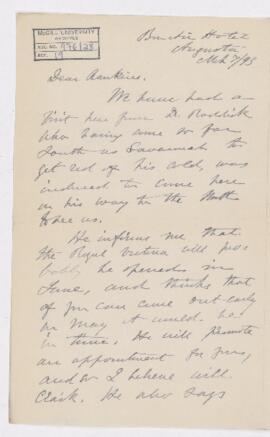 McGILL UNIVERSITY
ARCHIVES
ACC. NO. 776/28
REF. 19
Hotel
Augusta
Mch 7/93
Dear Rankine.
We have had a
visit here from Dr. Roddick
who having come so far
South as Savannah to
get rid of his cold, was
induced to come here
on his way to the North
to see us.
He informs me that
the Royal Victoria will pro
bably be opened in
June, and thinks that
if you can come out early
in May it would be
in time. He will promote
an appointment for you,
and so I believe will
Clark. He also says